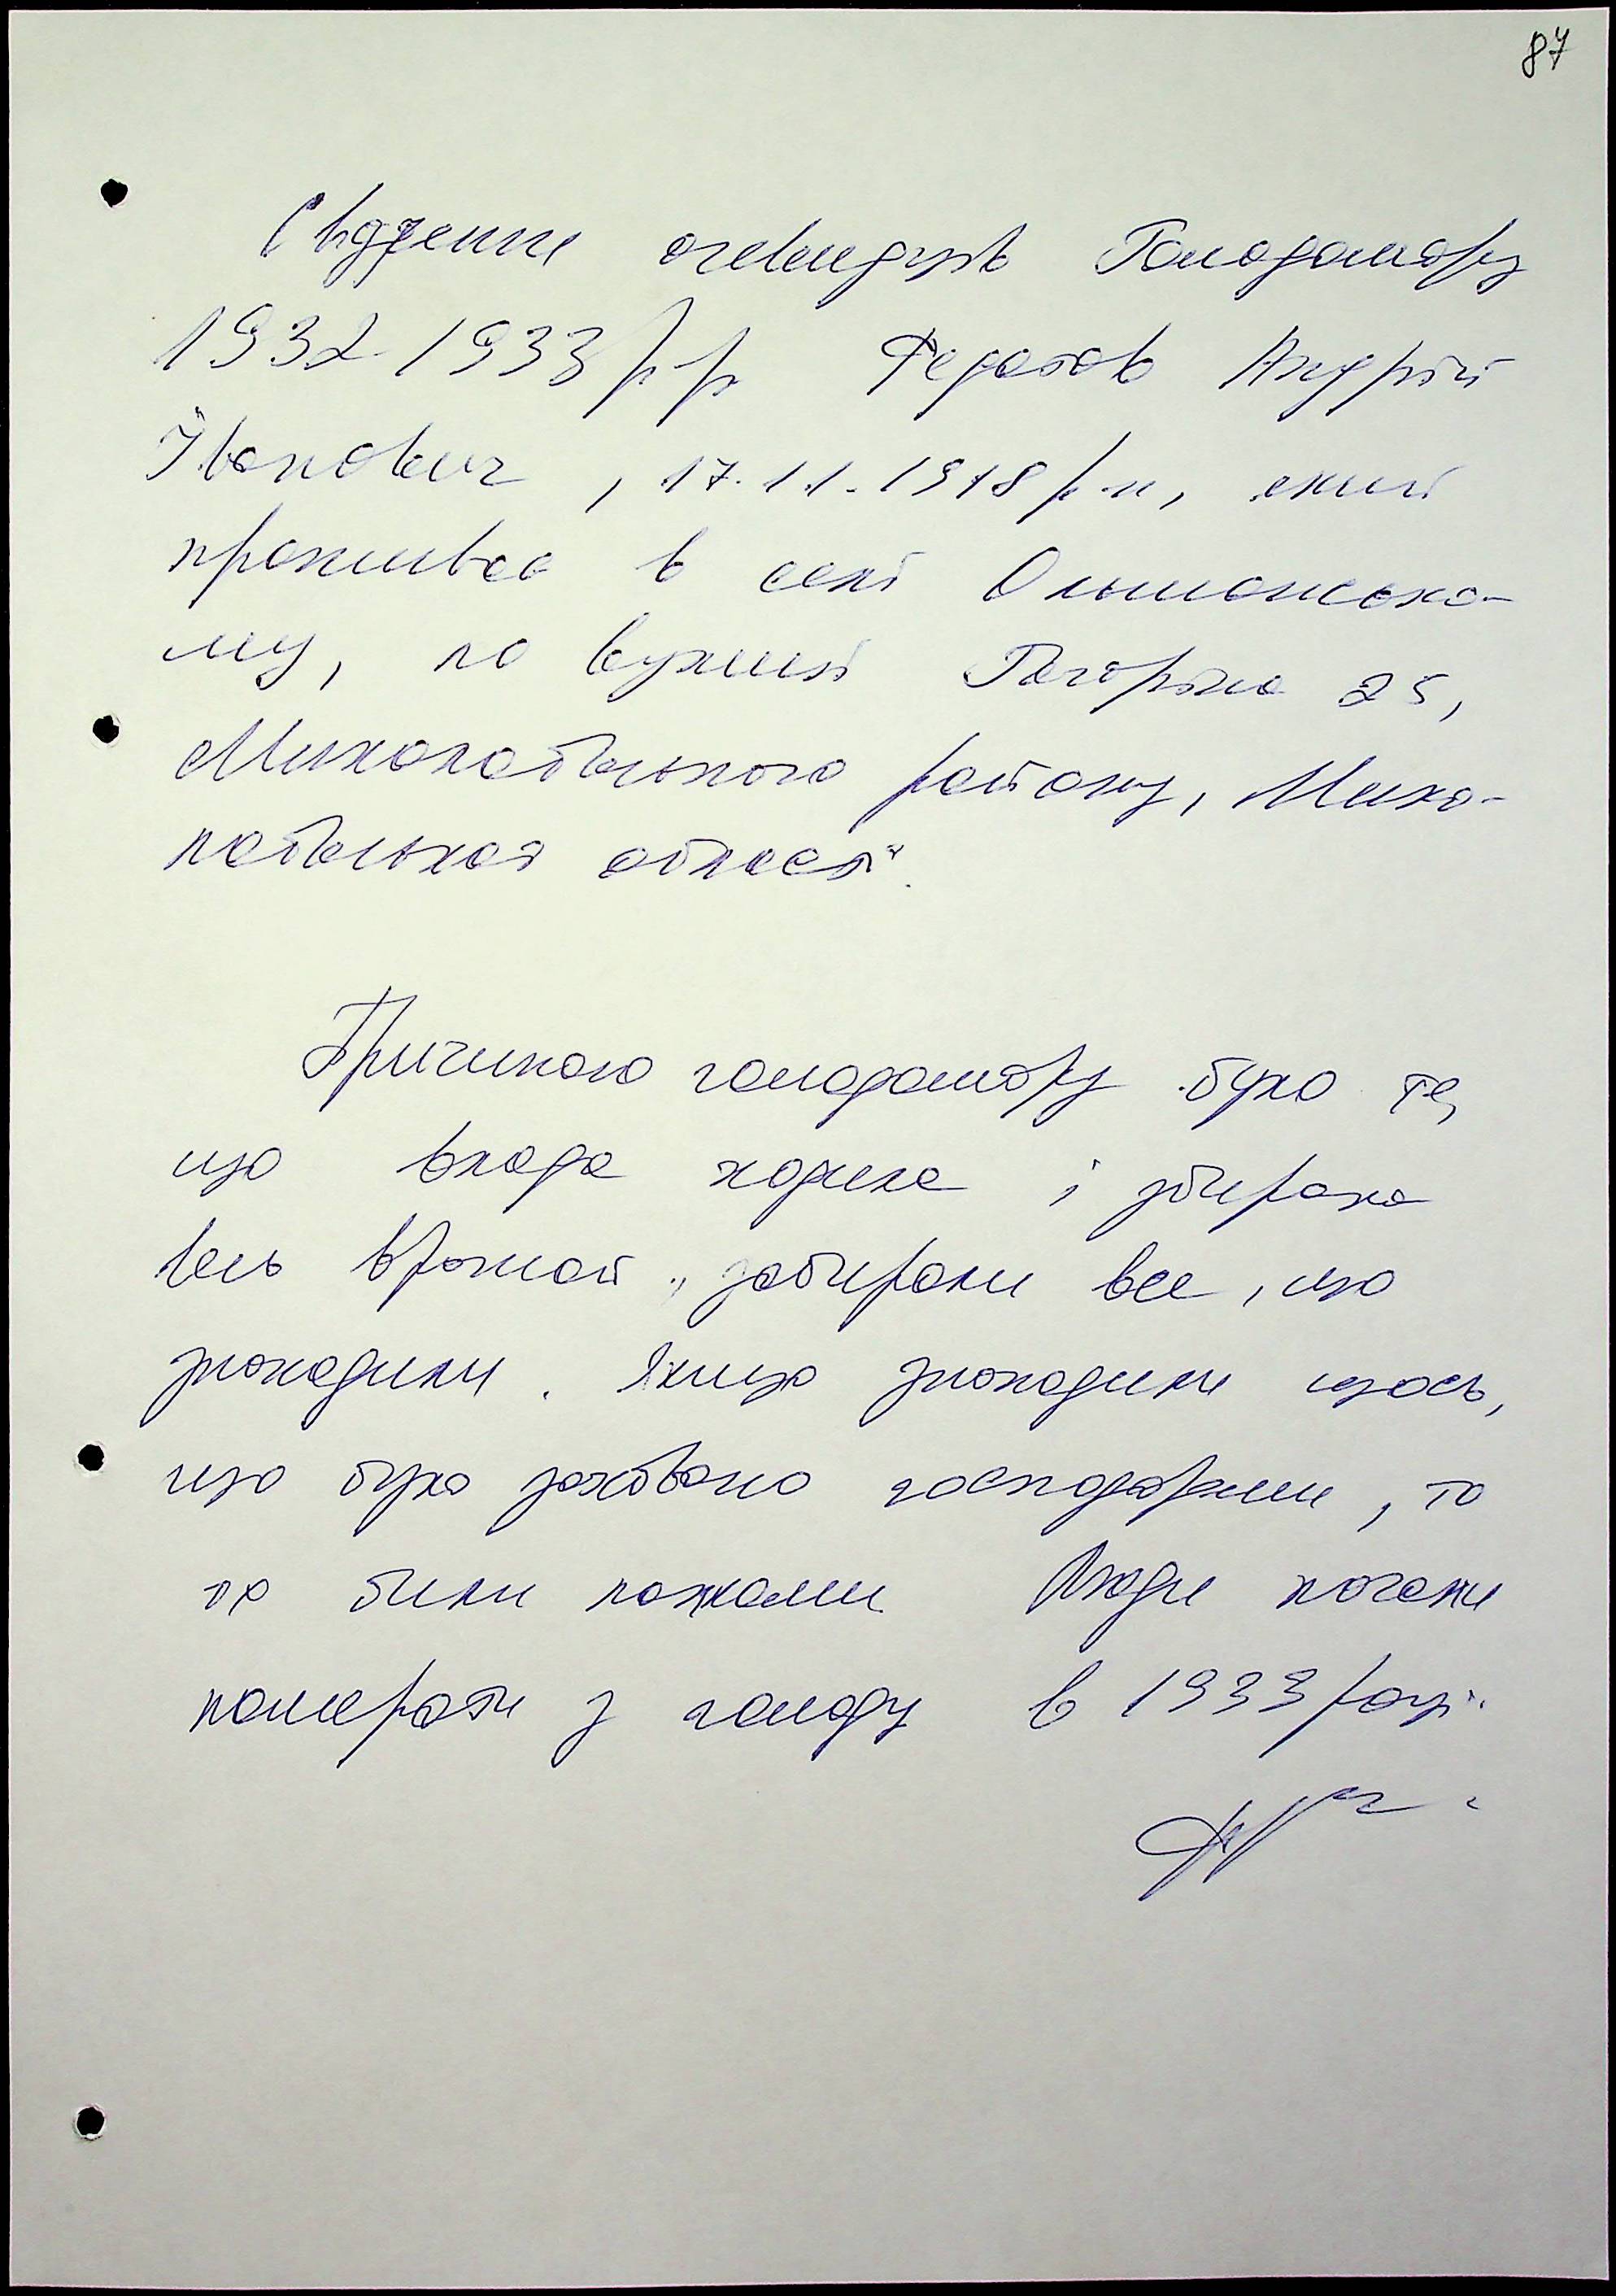 87
Свідчення очевидців Голодомору
1932-1933 рр Федотов Андрій
Іванович, 17.11.1918 р.н, який
проживає в селі Ольшансько-
му, по вулиці Гагаріна 25,
Миколаївського району, Мико-
лаївської області.
Причиною голодомору було те,
що влада ходила і збирала
весь врожай, забирали все, що
знаходили. Якщо знаходили щось,
що було заховано господарями, то
їх били палками. Люди почали
помирати з голоду в 1933 році.